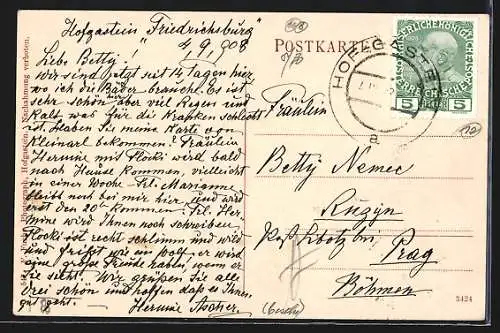 Hofgastein „Friedrichsburg"
4./9. 908
Liebe Betty!
wir sind jetzt seit 14 Tagen hier
wo ich die Bäder brauche. Es ist
sehr schön aber viel Regen und
Kalt was für die Kranken schlecht
ist. Haben Sie meine Karte von
Kleinarl bekommen? Fräulein
Hermine mit Flocki wird bald
nach Hause kommen, vielleicht
in einer Woche. Frl. Marianne
bleibt noch bei mir hier und wird
erst den 20ten kommen. Frl. Her-
mine wird Ihnen noch schreiben
Flocki ist recht schlimm und wild
und frißt wie ein wolf. er wird
eine große Freude haben, wenn er
Sie sieht. Wir grüßen Sie alle
drei schön und hoffen daß es Ihnen
gut geht. Hermine Ascher
Photograph, Hofgastein. Nachahmung verboten.
POSTKARTE
HOFGASTEIN
a
5 HELLER 5
Fräulein
Betty Nemec
Ruzyn
Post Liboc bei
Prag
Böhmen
5424